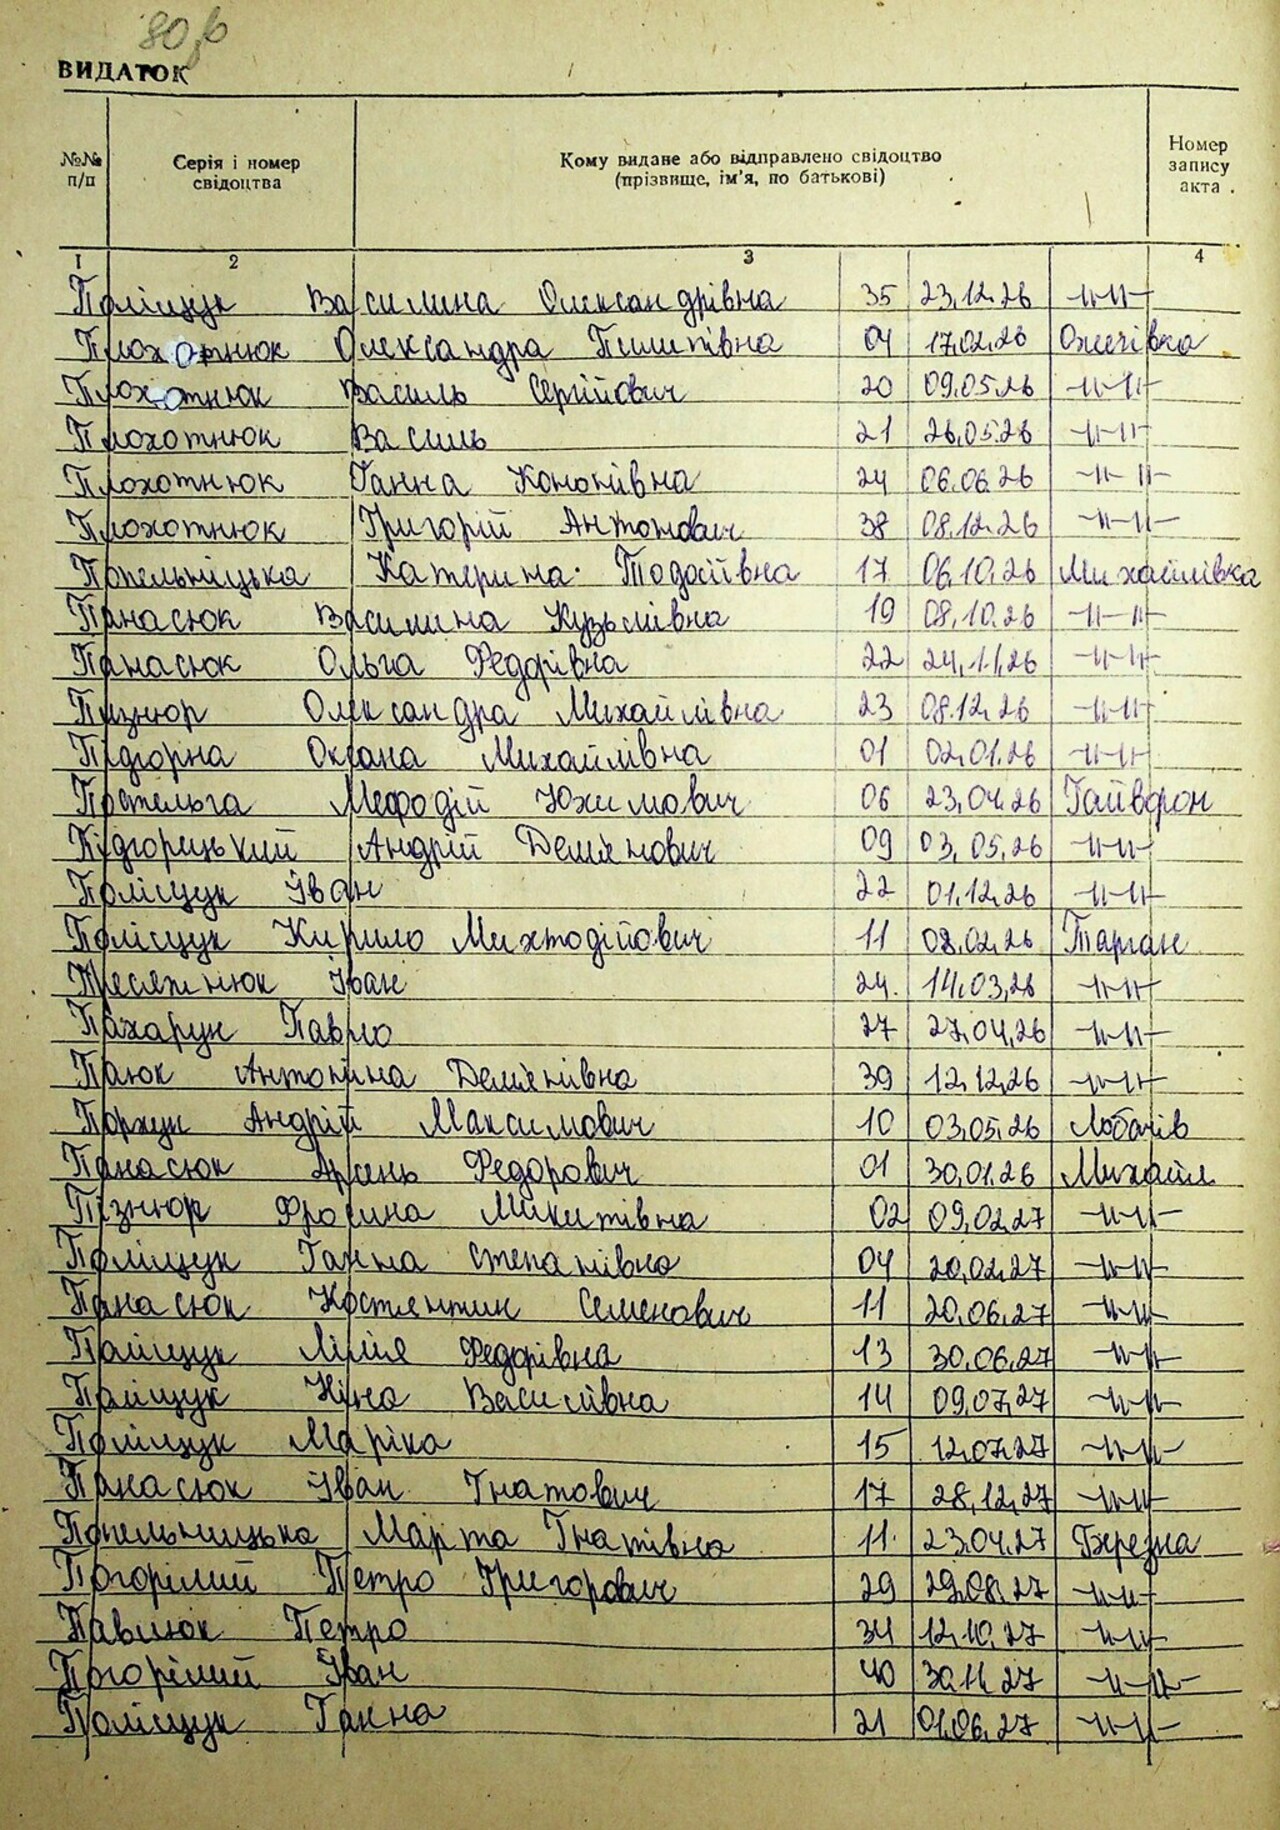 80
ВИДАТОК
№№ п/п Серія і номер свідоцтва Кому видане або відправлено свідоцтво (прізвище, ім'я, по батькові) Номер запису акта
1 2 3 4
Поліщук Василина Олександрівна 35 23.12.26 -//-//-
Плохотнюк Олександра Пилипівна 04 17.02.26
Плохотнюк Василь Сергійович 20 09.05.26 -//-//-
Плохотнюк Василь 21 26.05.26 -//-//-
Плохотнюк Ганна Кононівна 24 06.06.26 -//-//-
Плохотнюк Григорій Антонович 38 08.12.26 -//-//-
Попельницька Катерина Тодосіївна 17 06.10.26 Михайлівка
Панасюк Василина Кузьмівна 19 08.10.26 -//-//-
Панасюк Ольга Федорівна 22 24.11.26 -//-//-
Пізнюр Олександра Михайлівна 23 08.12.26 -//-//-
Підгорна Оксана Михайлівна 01 02.01.26 -//-//-
Постельга Мефодій Юхимович 06 23.04.26 Гайворон
Підгорецький Андрій Дем'янович 09 03.05.26 -//-//-
Поліщук Іван 22 01.12.26 -//-//-
Поліщук Кирило 11 08.02.26 Тарган
Іван 24. 14.03.26 -//-//-
Павло 27 27.04.26 -//-//-
Паюк Антоніна Дем'янівна 39 12.12.26 -//-//-
Андрій Максимович 10 03.05.26 Лобачів
Панасюк Арсень Федорович 01 30.01.26 Михайл
Пізнюр Фросина Микитівна 02 09.02.27 -//-//-
Поліщук Ганна Степанівна 04 20.02.27 -//-//-
Панасюк Костянтин Семенович 11 20.06.27 -//-//-
Поліщук Лілія Федорівна 13 30.06.27 -//-//-
Поліщук Ніна Василівна 14 09.07.27 -//-//-
Поліщук Маріка 15 12.07.27 -//-//-
Панасюк Іван Гнатович 17 28.12.27 -//-//-
Попельницька Марта Гнатівна 11. 23.04.27 Березна
Погорілий Петро Григорович 29 29.08.27 -//-//-
Павлюк Петро 34 12.10.27 -//-//-
Погорілий Іван 40 30.11.27 -//-//-
Поліщук Ганна 21 01.06.27 -//-//-